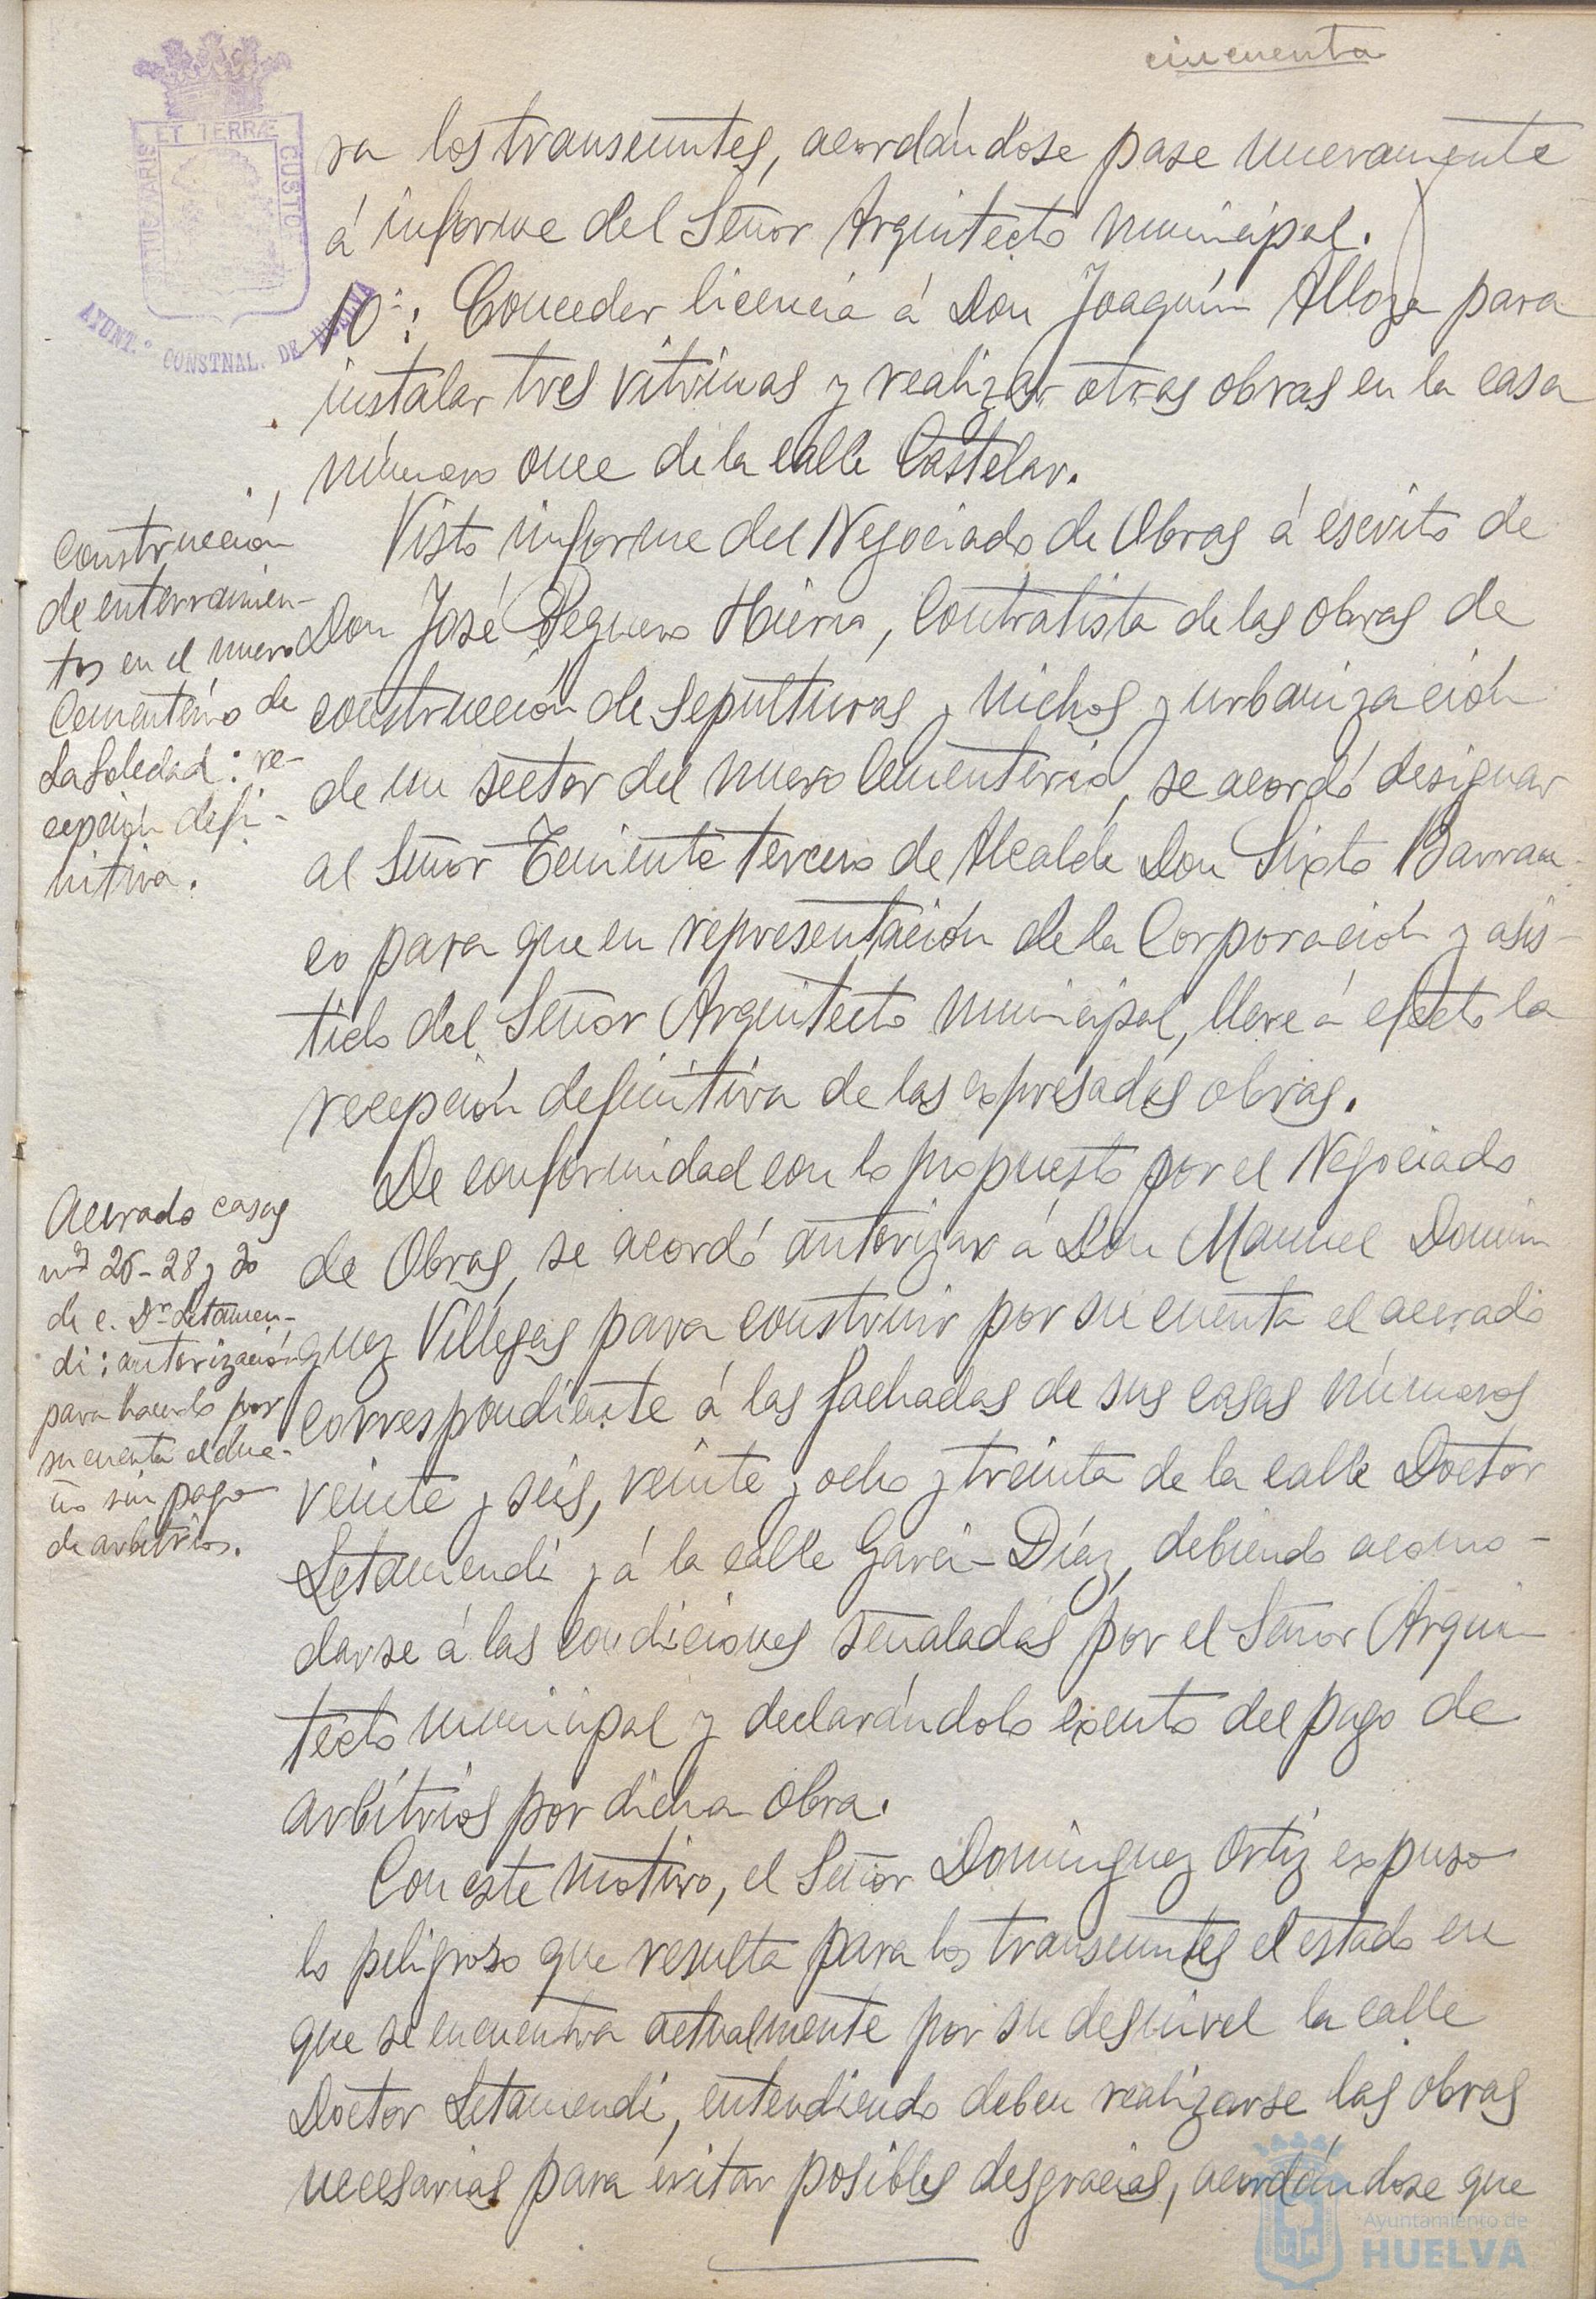 cincuenta
PORTUS MARIS ET TERRÆ CUSTODIA
AYUNT.º CONSTNAL. DE HUELVA
ra los transeuntes, acordándose pase nuevamente
á informe del Señor Arquitecto municipal.
10º: Conceder licencia á Don Joaquín Alloza para
instalar tres vitrinas y realizar otras obras en la casa
número once de la calle Castelar.
Construcción
de enterramien-
tos en el nuevo
Cementerio de
La Soledad: re-
cepción defi-
nitiva.
Visto informe del Negociado de Obras á escrito de
Don José Peguero Hierro, Contratista de las obras de
construcción de sepulturas y nichos y urbanización
de un sector del nuevo Cementerio, se acordó designar
al Señor Teniente tercero de Alcalde Don Sixto Barran-
co para que en representación de la Corporación y asis-
tido del Señor Arquitecto municipal, lleve á efecto la
recepción definitiva de las expresadas obras.
Acerado casas
nos 26-28 y 30
de c. Dr. Letamen-
di: autorización
para hacerlo por
su cuenta el due-
ño sin pago
de arbitrios.
De conformidad con lo propuesto por el Negociado
de Obras, se acordó autorizar á Don Manuel Domín
guez Villegas para construir por su cuenta el acerado
correspondiente á las fachadas de sus casas números
veinte y seis, veinte y ocho y treinta de la calle Doctor
Letamendi y á la calle Garci-Díaz, debiendo acomo-
darse á las condiciones señaladas por el Señor Arqui-
tecto municipal y declarándolo exento del pago de
arbitrios por dicha obra.
Con este motivo, el Señor Domínguez Ortiz expuso
lo peligroso que resulta para los transeuntes el estado en
que se encuentra actualmente por su desnivel la calle
Doctor Letamendi, entendiendo deben realizarse las obras
necesarias para evitar posibles desgracias, acordándose que
Ayuntamiento de
HUELVA